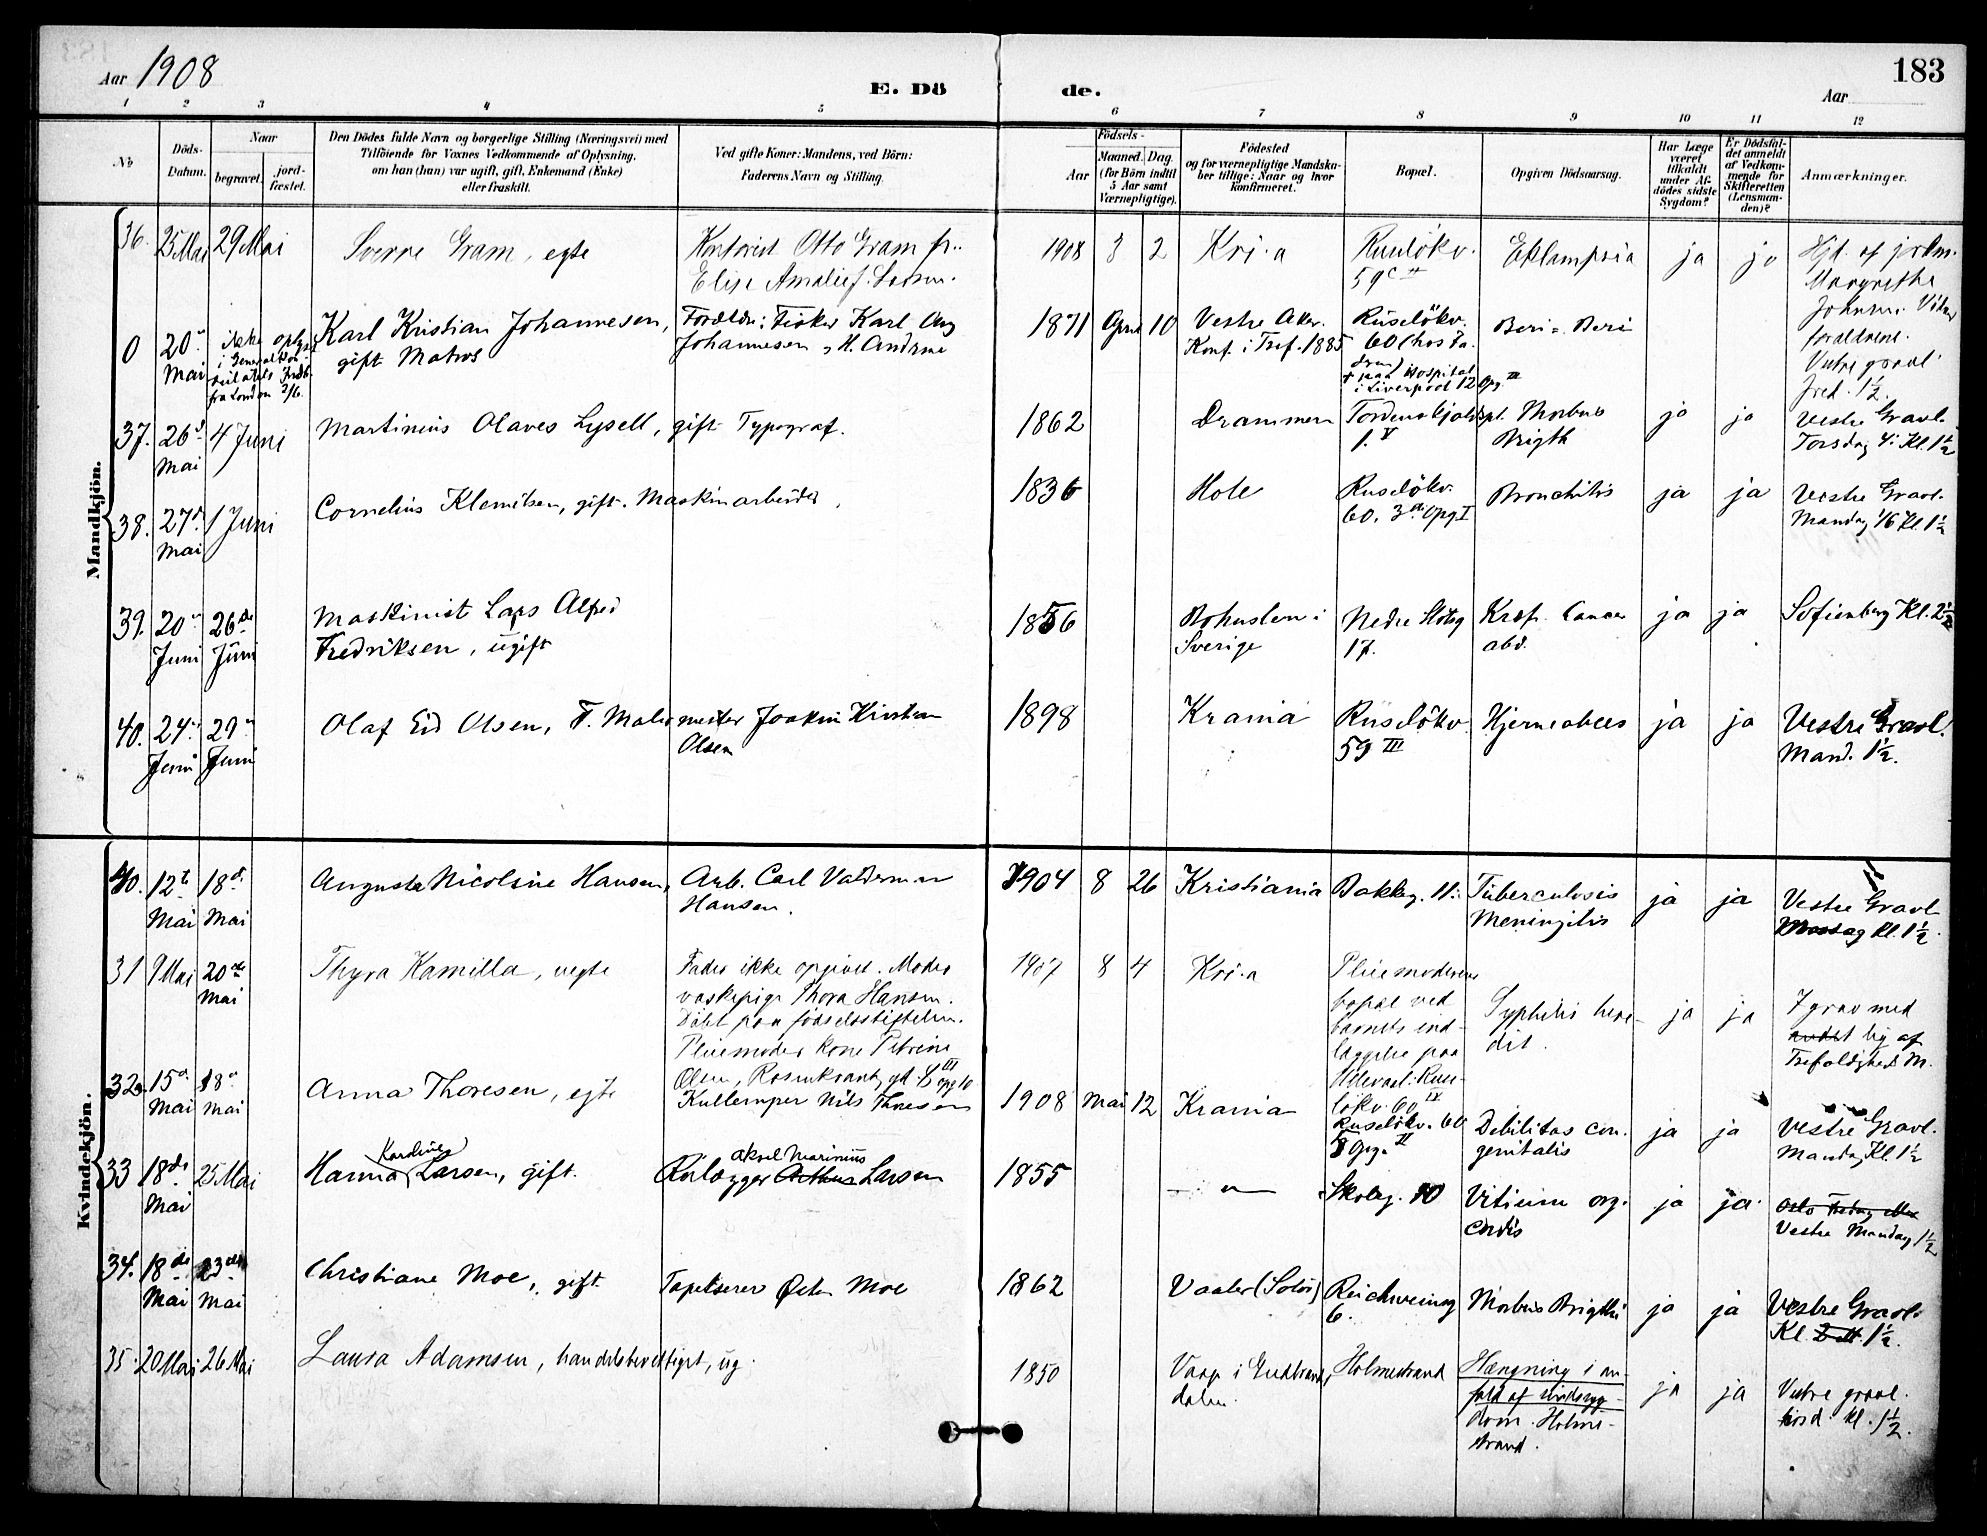 Aar 1908
E. Döde.
Aar
183
1 2 3 4 5 6 7 8 9 10 11 12
No
Döds-Datum.
Naar
begravet.
jordfæstet.
Den Dödes fulde Navn og borgerlige Stilling (Næringsvei) med
Tilföiende for Voxnes Vedkommende af Oplysning,
om han (hun) var ugift, gift, Enkemand (Enke)
eller fraskilt.
Ved gifte Koner: Mandens, ved Börn:
Faderens Navn og Stilling.
Födsels-
Aar
Maaned. Dag.
(for Börn indtil
5 Aar samt
Værnepligtige).
Födested
og for værnepligtige Mandskaber tillige: Naar og hvor
konfirmeret.
Bopæl.
Opgiven Dödsaarsag.
Har Læge
været
tilkaldt
under Afdödes sidste
Sygdom?
Er Dödsfaldet anmeldt
af Vedkommende for
Skifteretten
(Lensmanden)?
Anmærkninger.
Mandkjön.
36. 25 Mai 29 Mai Sverre Gram, egte
Kontorist Otto Gram
Elise Amalie f. Larsen.
1908 3 2 Kri.a
Ruselökv. 59c II
Eklampsia ja ja
Hjd. af jordm.
Margrethe
Johnsen
forældrene.
Vestre gravl.
fred. 1½.
0 20n Mai
ikke oplyst
i Generalkonsulatets Indb.
fra London 2/6.
Karl Kristian Johannesen,
gift Matros
Forældre: Fisker Karl Aug
Johannesen, M. Andrine
1871 April 10
Vestre Aker.
Konf. i Tref. 1885
Ruselökv.
60 (hos
† paa Hospital
i Liverpool 12 Opg. III
Beri-Beri
37. 26d Mai 4 Juni Martinius Olaves Lysell, gift Typograf.
1862 Drammen
Tordenskjoldspl.
1. V
Morbus
Brigth
ja ja
Vestre Gravl.
Torsdag 4. Kl 1½
38. 27d Mai 1 Juni Cornelius Klemetsen, gift. Maskinarbeider.
1836 Hole
Ruselökv.
60, 3die Opg I
Bronchitis ja ja
Vestre Gravl.
Mandag 1/6 Kl. 1½
39. 20n Juni 26de Juni
Maskinist Lars Alfred
Fredriksen, ugift
1856
Bohuslen i
Sverige
Nedre Slotsg
17.
Kræft. Cancer
abd.
ja ja
Sofienberg Kl. 2½
40. 24n Juni 29n Juni Olaf Eid Olsen, F. Malermester Joakim Kristian
Olsen
1898 Krania
Ruselökv.
59 III
Hjerneabces ja ja
Vestre Gravl.
Mand. 1½.
Kvindekjön.
40. 12t Mai 18d. Mai
Augusta Nicoline Hansen,
Arb. Carl Valdemar
Hansen.
1904 8 26 Kristiania Bakkeg. 11.
Tuberculosis
Meningitis
ja ja
Vestre Gravl
Kl. 1½.
31 9 Mai 20de Mai
Thyra Kamilla, uegte
Fader ikke opgivet. Moder
vaskepige Thora Hansen.
Döbt paa födselsstiftelsen.
Pleiemoder kone Petrine
Olsen, Rosenkrantz gd. 4 III opg 10
1907 8 4 Kri.a
Pleiemoderens
bopæl ved
barnets indlæggelse paa
Ullevaal: Ruselökv. 60 IV
Syphilis heredit.
ja ja
I grav med
andet lig af
Trefoldigheds M.
32. 15d Mai 18n Mai
Anna Thoresen, egte
Kullemper Nils Thoresen
1908 Mai 12 Krania
Ruselökv. 60
8 Opg. II
Debilitas congenitalis
ja ja
Vestre Gravl.
Mandag Kl. 1½
33 18de Mai 25 Mai
Karoline
Hanna Larsen, gift.
Aksel Marinius
Rörlægger Arthur Larsen
1855 — " —
Skoleg. 10
Vitium org.
cordis
ja ja.
Oslo Fredag eller
Vestre Mandag 1½
34. 18de Mai 23de Mai
Christiane Moe, gift
Tapetserer Peter Moe
1862 Vaaler (Solör)
Reichweinsg
6.
Morbus Brigthi ja ja
Vestre Gravl.
Kl. 1½.
35. 20 Mai 26 Mai Laura Adamsen, handelsberettiget, ug.
1850
Vaage i Gudbrandsdalen.
Holmestrand
Hængning i anfald af sindssygdom. Holmestrand.
ja ja
Vestre gravl.
tirsd. kl. 1½.